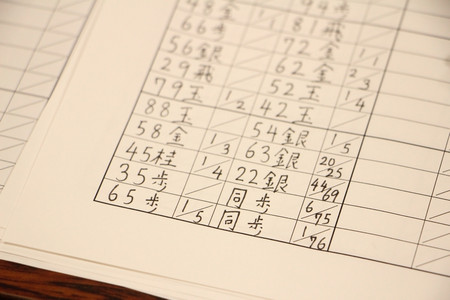 48金 1 94歩
66歩 1 81飛
56銀 72金 1/1
29飛 62金 2/3
79玉 1/2 52玉 1/4
88玉 42玉
58金 1/3 54銀 1/5
45桂 1/4 63銀 20/25
35歩 22銀 44/69
65歩 1/5 同歩 6/75
同歩 1/76